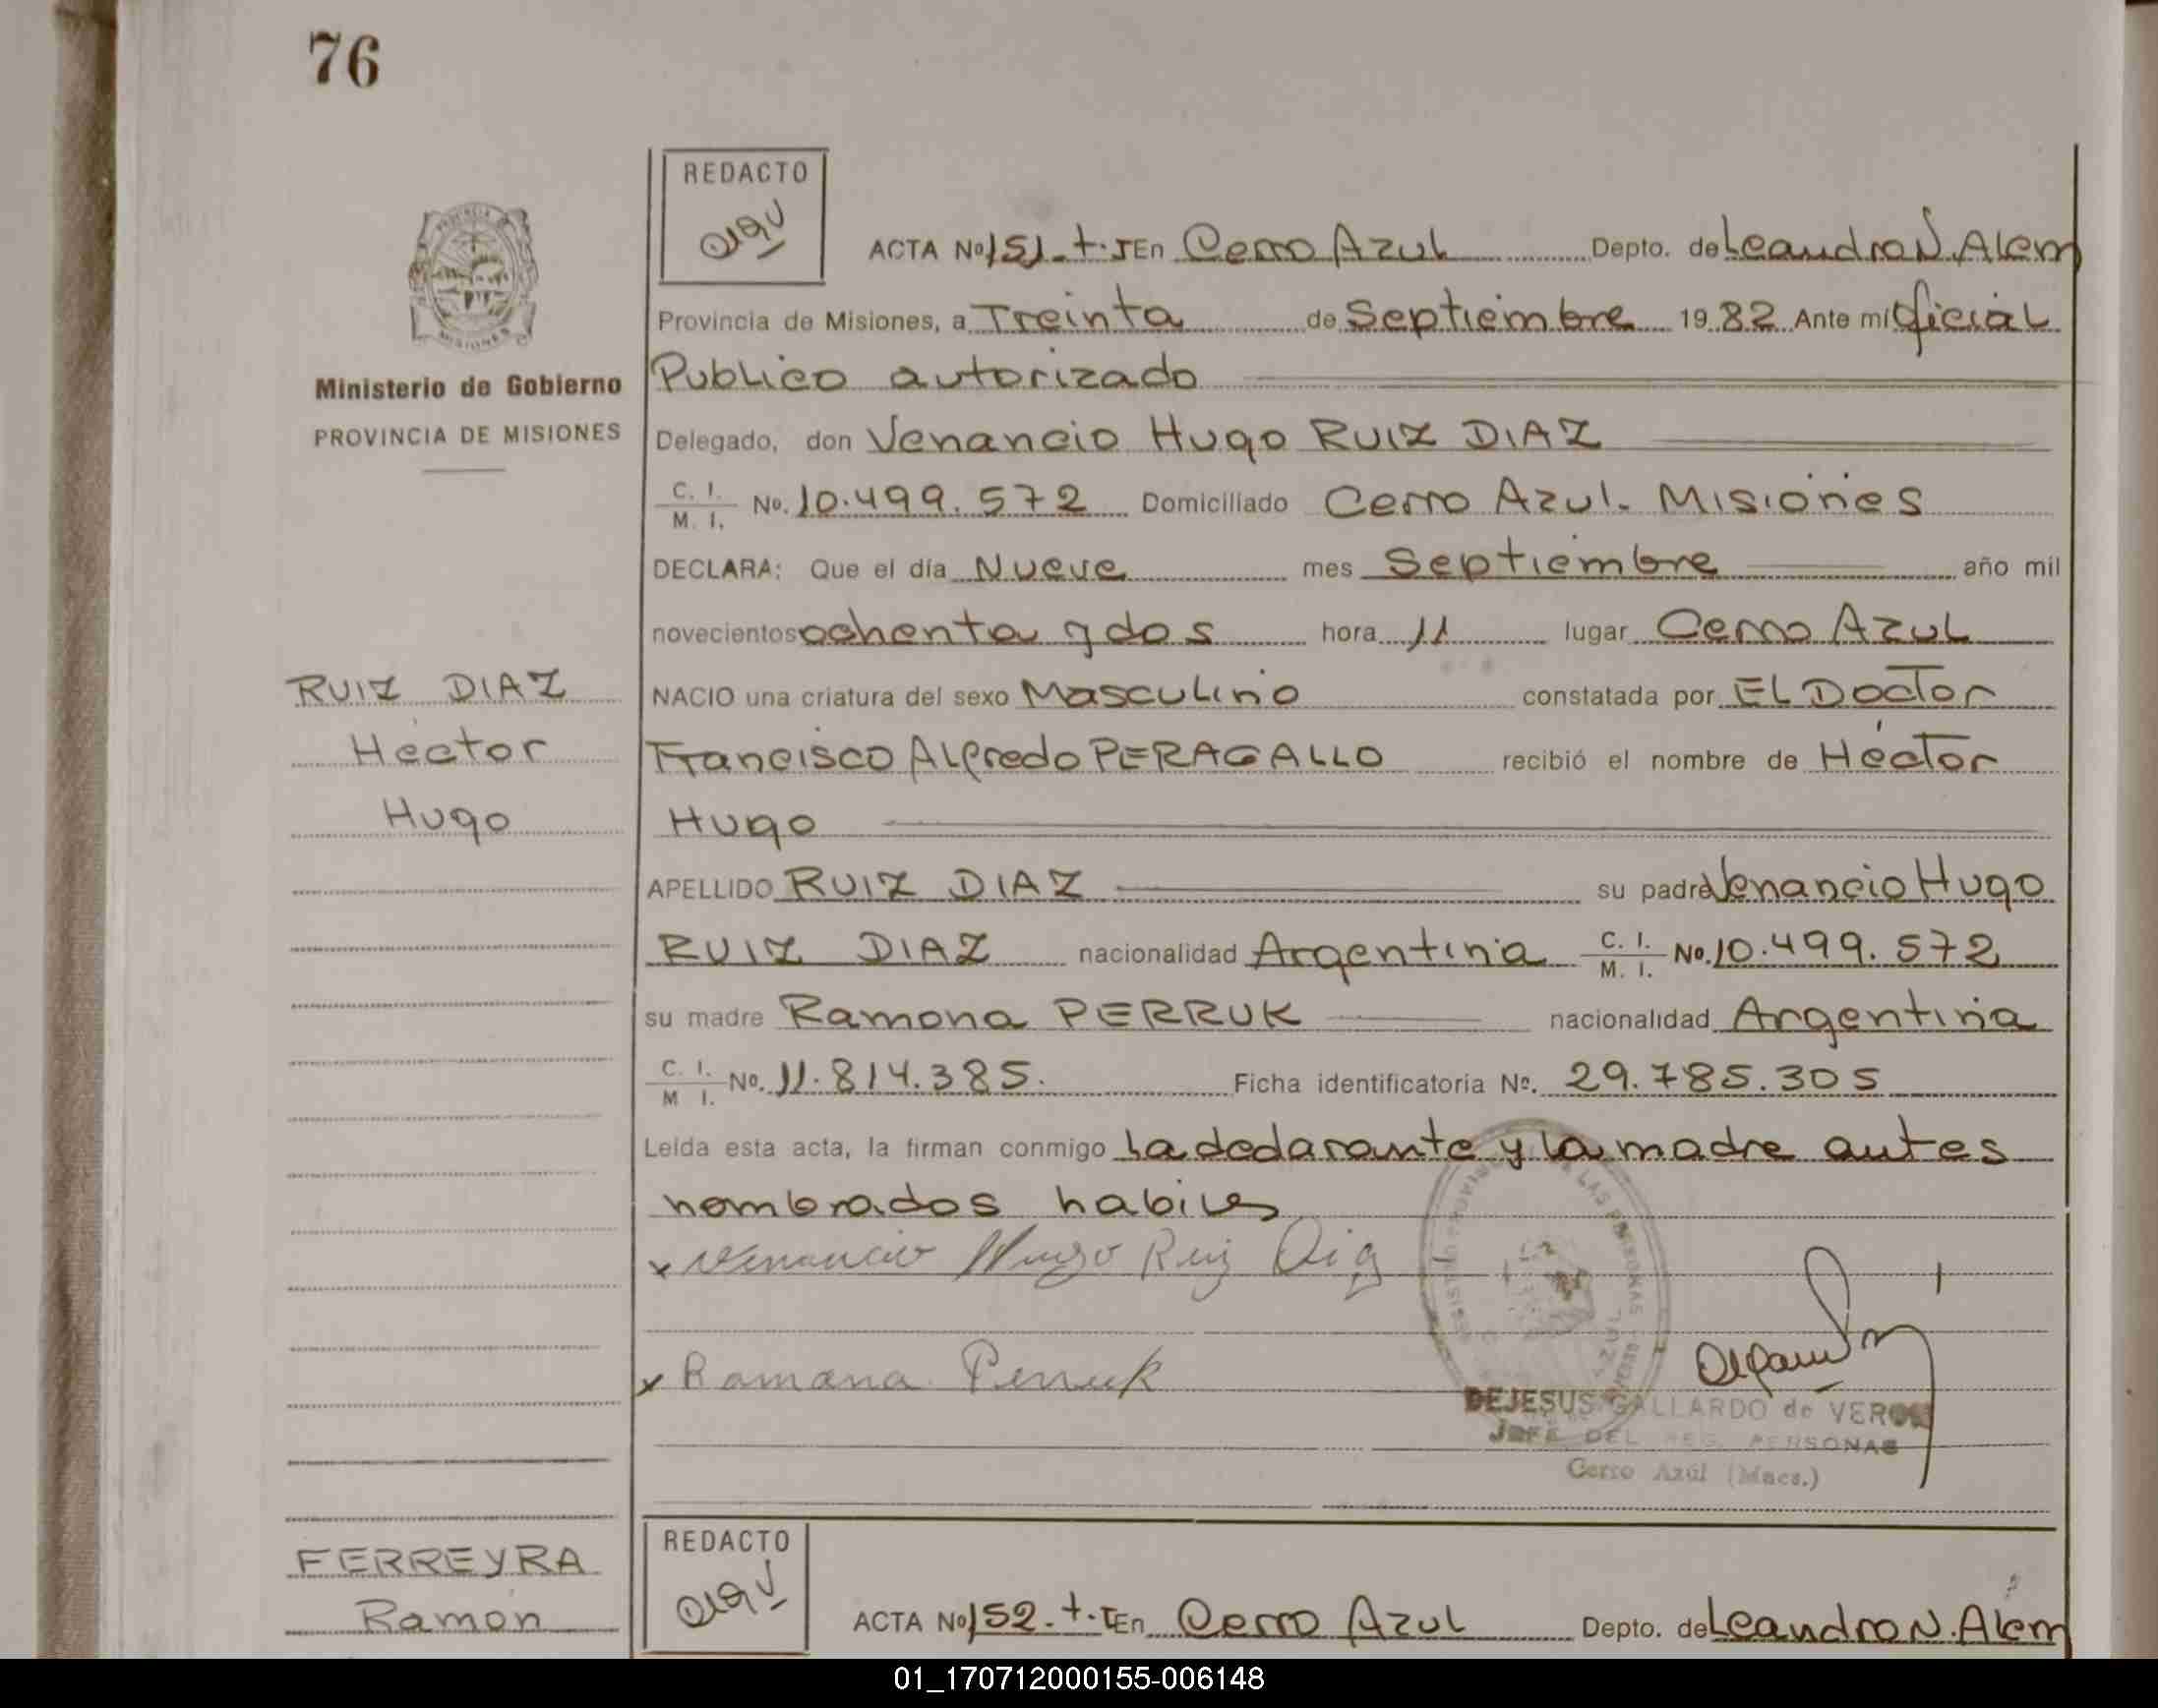 76
REDACTO
ACTA Nº 151 - t. I En Cerro Azul Depto. de Leandro N. Alem
Provincia de Misiones, a Treinta de Septiembre 19 82 Ante mi Oficial
Publico autorizado
Ministerio de Gobierno
PROVINCIA DE MISIONES
Delegado, don Venancio Hugo RUIZ DIAZ
C. I. M. I. No. 10.499.572 Domiciliado Cerro Azul. Misiones
DECLARA: Que el día Nueve mes Septiembre año mil
novecientos ochenta y dos hora 11 lugar Cerro Azul
RUIZ DIAZ
Hector
Hugo
NACIO una criatura del sexo Masculino constatada por El Doctor
Francisco Alfredo PERAGALLO recibió el nombre de Héctor
Hugo
APELLIDO RUIZ DIAZ su padre Venancio Hugo
RUIZ DIAZ nacionalidad Argentina C. I. M. I. No. 10.499.572
su madre Ramona PERRUK nacionalidad Argentina
C. I. M I. No. 11.814.385. Ficha identificatoria Nº. 29.785.305
Leída esta acta, la firman conmigo la declarante y la madre antes
nombrados habiles
x Venancio Hugo Ruiz Diaz
x Ramona Perruk
DEJESUS GALLARDO de VERON
JEFE DEL REG. PERSONAS
Cerro Azúl (Mnes.)
FERREYRA
Ramon
REDACTO
ACTA Nº 152 - t. I En Cerro Azul Depto. de Leandro N. Alem
01_170712000155-006148